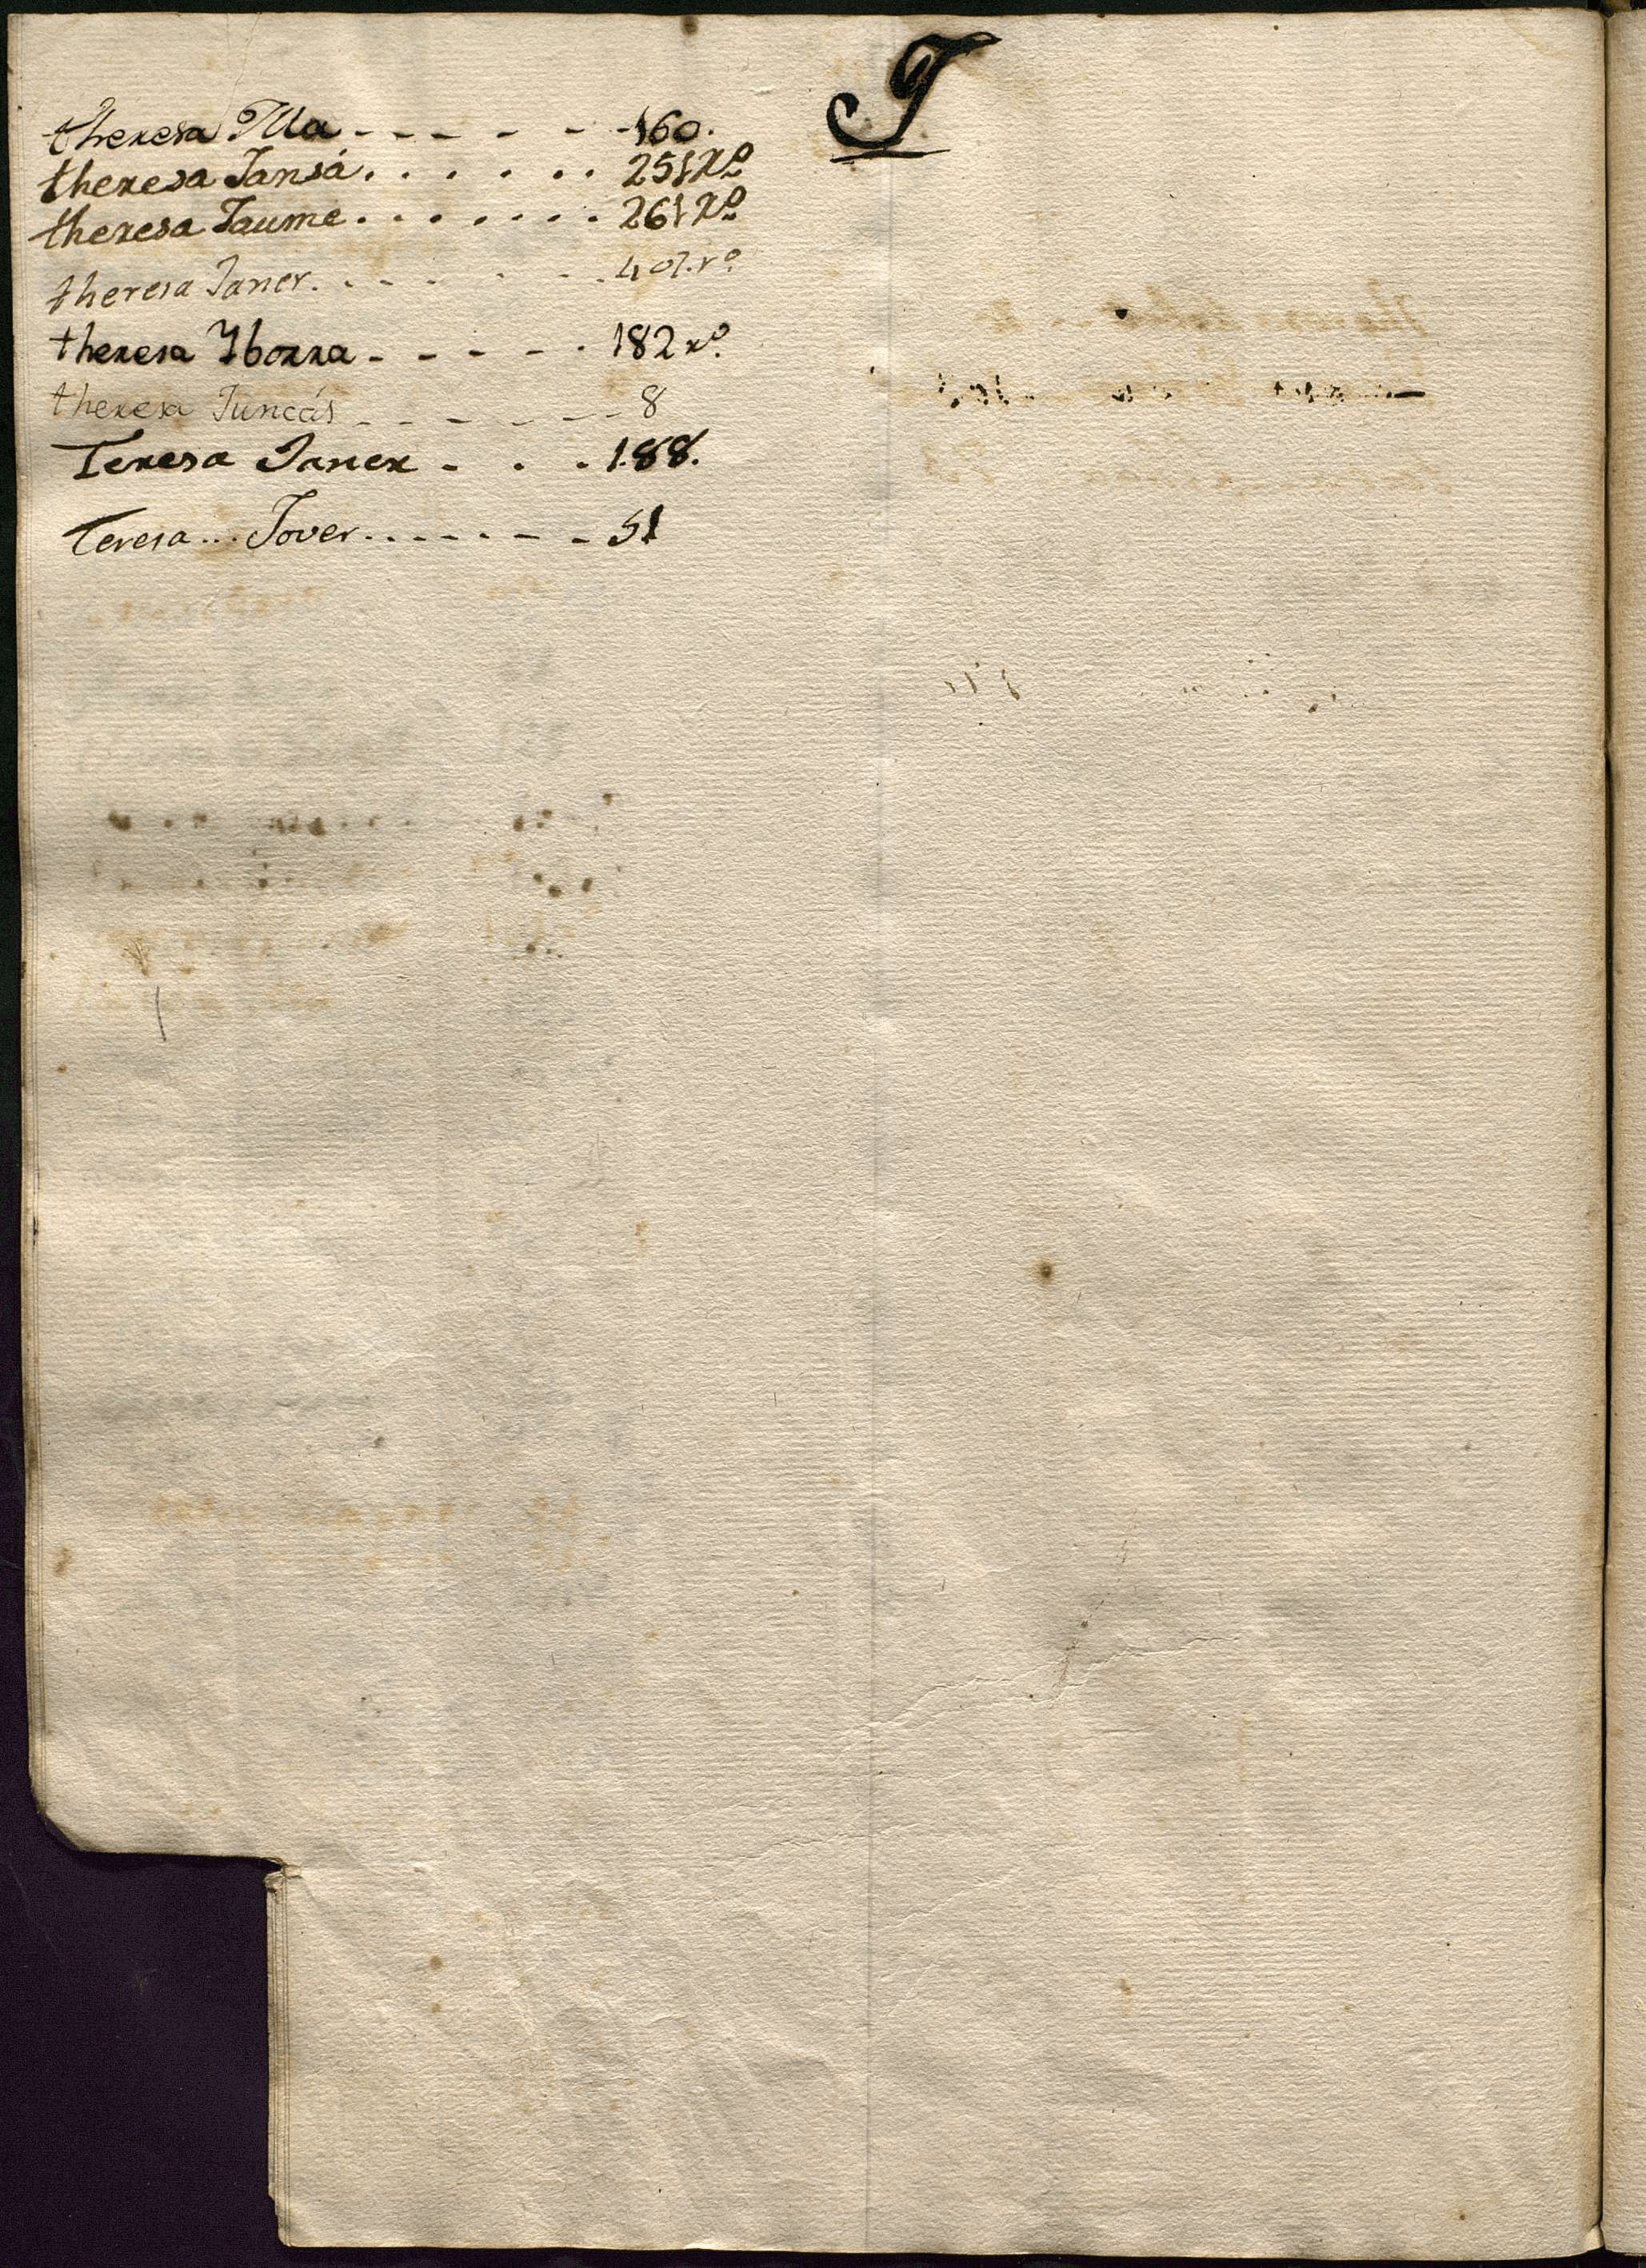 J
theresa Illa - - - - - - 160.
theresa Jansá . . . . . . 251 Rº
theresa Jaume . . . . . . . 261 Rº
theresa Janer. . - - - - - . 407. rº
theresa Yborra - - - - - . 182 rº
theresa Juncás - - - - - - 8
Teresa Janer - . . . 188.
Teresa... Jover. . - - - - - - 51